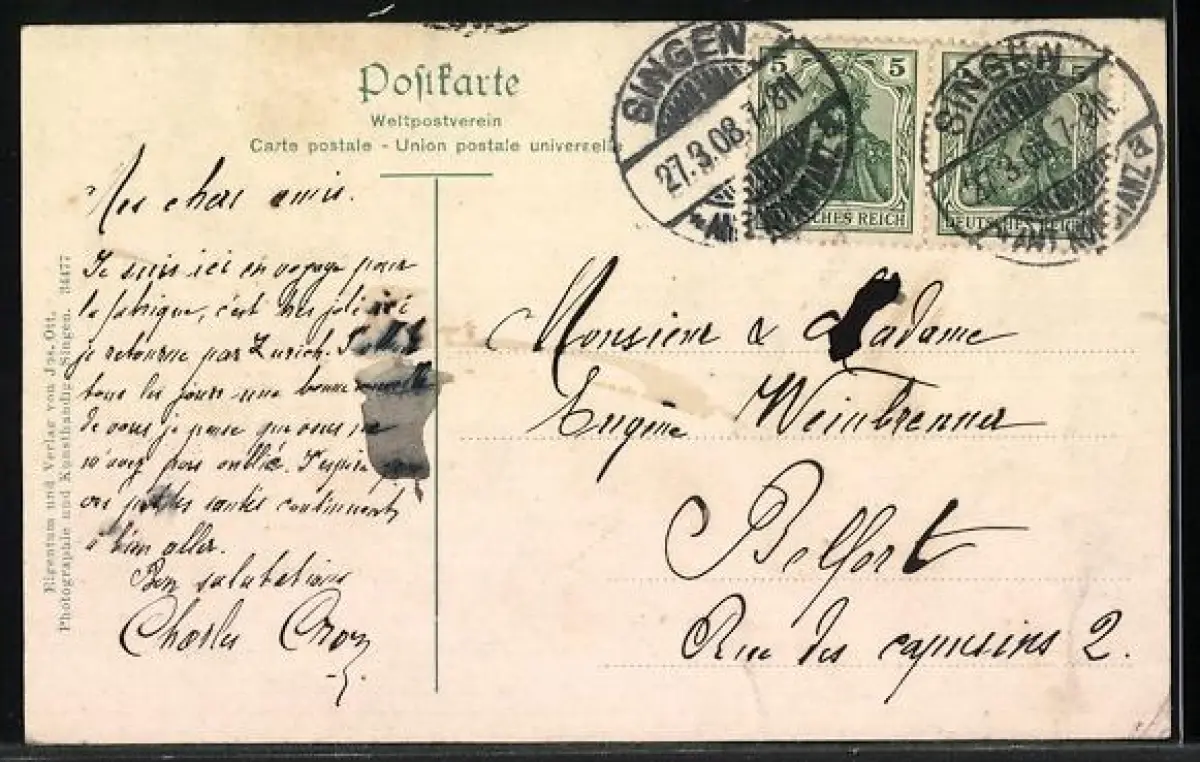 Postkarte
Weltpostverein
Carte postale - Union postale universelle
SINGEN
27.3.08. 7-8N
a
5 5
DEUTSCHES REICH
SINGEN
27.3.08. 7-8N
a
5 5
DEUTSCHES REICH
Mes chers amis.
Je suis ici en voyage pour
la fabrique, c'est très joli ici
je retourne par Zurich.
tous les jours une bonne nouvelle
de vous je pense que vous ne
m'avez pas oublié. J'espère
vos petites santés continuent
à bien aller.
Bon salutations
Charles
Monsieur & Madame
Eugène Weinbrenner
Belfort
Rue des capucins 2.
Eigentum und Verlag von Jos. Ott,
Photographie und Kunsthandlg. Singen. 34477